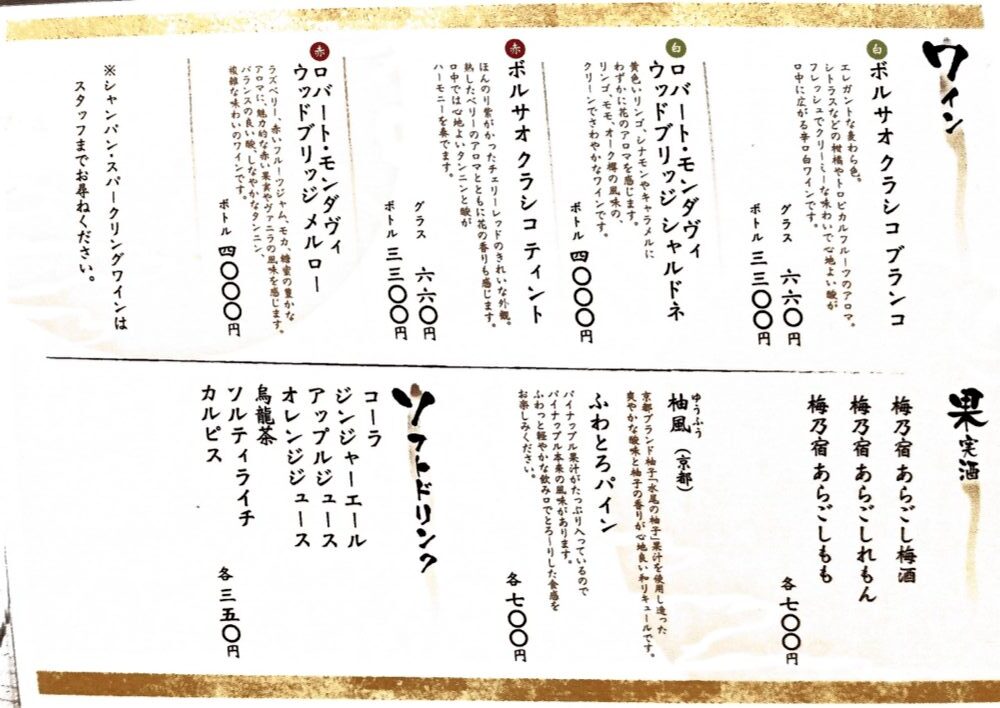 ワイン
白 ボルサオ クラシコ ブランコ
エレガントな麦わら色。
シトラスなどの柑橘やトロピカルフルーツのアロマ。
フレッシュでクリーミーな味わいで心地よい酸が
口中に広がる辛口白ワインです。
グラス 六六〇円
ボトル 三三〇〇円
白 ロバート・モンダヴィ
ウッドブリッジ シャルドネ
黄色いリンゴ、シナモンやキャラメルに
わずかに花のアロマを感じます。
リンゴ、モモ、オーク樽の風味の、
クリーンでさわやかなワインです。
ボトル 四〇〇〇円
赤 ボルサオ クラシコ ティント
ほんのり紫がかったチェリーレッドのきれいな外観。
熟したベリーのアロマとともに花の香りも感じます。
口中では心地よいタンニンと酸が
ハーモニーを奏でます。
グラス 六六〇円
ボトル 三三〇〇円
赤 ロバート・モンダヴィ
ウッドブリッジ メルロー
ラズベリー、赤いフルーツジャム、モカ、糖蜜の豊かな
アロマに、魅力的な赤い果実やヴァニラの風味を感じます。
バランスの良い酸、しなやかなタンニン、
複雑な味わいのワインです。
ボトル 四〇〇〇円
※シャンパン・スパークリングワインは
スタッフまでお尋ねください。
果実酒
梅乃宿 あらごし梅酒
梅乃宿 あらごしれもん
梅乃宿 あらごしもも
各 七〇〇円
ゆうふう
柚風(京都)
京都ブランド柚子「水尾の柚子」果汁を使用し造った
爽やかな酸味と柚子の香りが心地良い和リキュールです。
ふわとろパイン
パイナップル果汁がたっぷり入っているので
パイナップル本来の風味があります。
ふわっと軽やかな飲み口でとろ〜りした食感を
お楽しみください。
各 七〇〇円
ソフトドリンク
コーラ
ジンジャーエール
アップルジュース
オレンジジュース
烏龍茶
ソルティライチ
カルピス
各 三五〇円